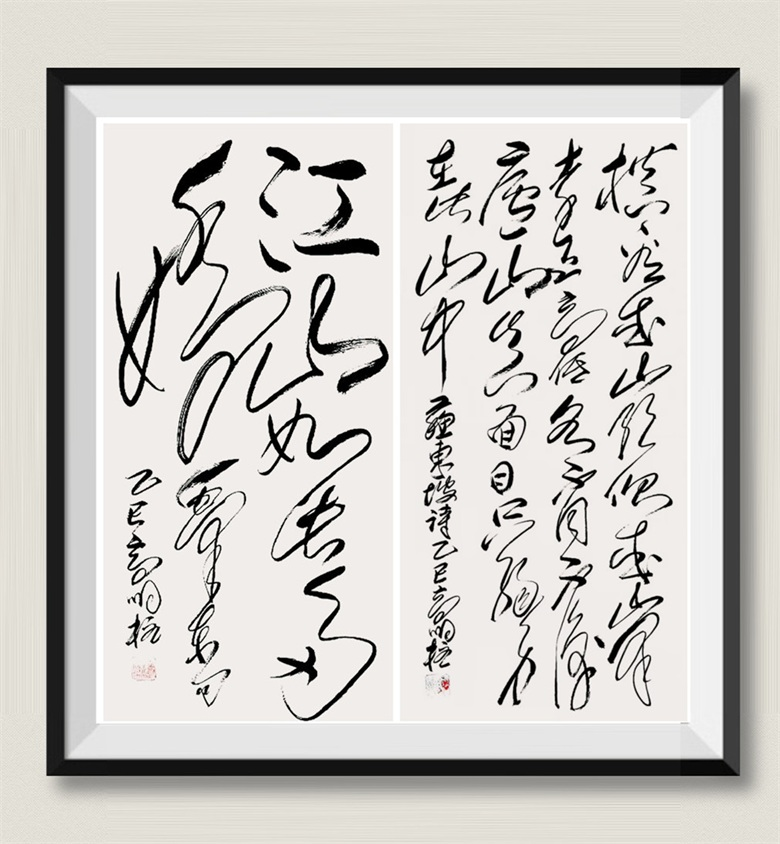 横看成嶺侧成峯
远近高低各不同不识
庐山真面目只缘身
在此山中 蘇東坡诗乙巳高明
江山如此多
娇 毛泽东句
乙巳高明